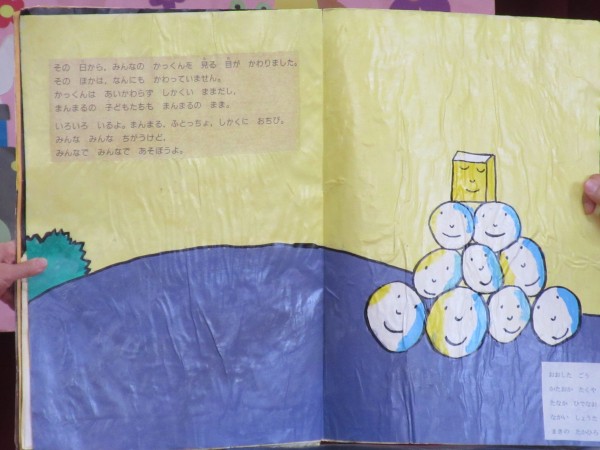 その 日から、みんなの かっくんを 見る 目が かわりました。
その ほかは、なんにも かわっていません。
かっくんは あいかわらず しかくい ままだし、
まんまるの 子どもたちも まんまるの まま。
いろいろ いるよ。まんまる、ふとっちょ、しかくに おちび。
みんな みんな ちがうけど、
みんなで みんなで あそぼうよ。
おおした ごう
かたおか たくや
たなか ひでなお
ながい しょうた
ままの たかひろ